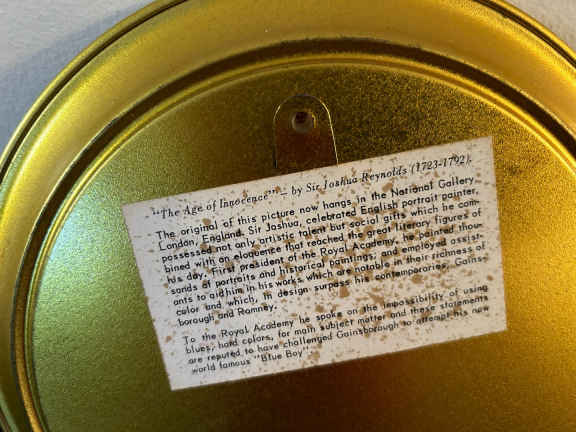 "The Age of Innocence" — by Sir Joshua Reynolds (1723-1792).
The original of this picture now hangs in the National Gallery,
London, England. Sir Joshua, celebrated English portrait painter,
possessed not only artistic talent but social gifts which he com-
bined with an eloquence that reached the great literary figures of
his day. First president of the Royal Academy, he painted thou-
sands of portraits and historical paintings; and employed assist-
ants to aid him in his works which are notable in their richness of
color and which, in design surpass his contemporaries, Gains-
borough and Romney.
To the Royal Academy he spoke on the impossibility of using
blues, hard colors, for main subject matter and these statements
are reputed to have challenged Gainsborough to attempt his now
world famous "Blue Boy"